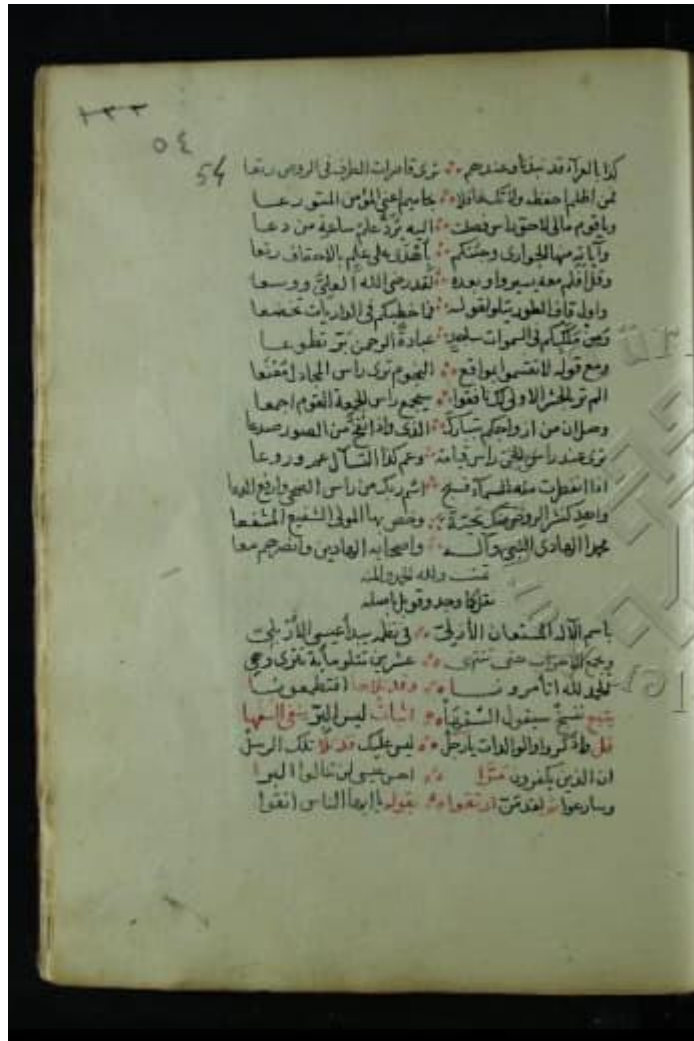 ٢٣٣
٥٤
54
كذا بالعراء قد نبذنا وعندهم ترى قاصرات الطرف في الروض رتعا
فمن اظلم احفظه ولا تك غافلا حاميم اعني المؤمن المتورعا
وياقوم مالي لاحق ياس فصلت اليه يرد علم ساعة من دعا
وآياته منها الجواري وجئتكم على علم بالاحقاف
وقل افلم معه يسيروا وبعده لقد رضى الله العلي ووسعا
واول قاف الطور يتلو لقوله فما خطبكم في الذاريات تخضعا
وكم من ملك في السموات عبادة الرحمن
ومع قوله لا تقسموا بمواقع النجوم ترى راس المجادل مقنعا
الم تر للحشر الاولى نافقوا يجمع راس الجمعة القوم اجمعا
وصل ان من ازواجكم تبارك الذي واذا نفخ من الصور صدعا
ترى عند راس الجن راس قيامة وعم كذا التسآل عم وروعا
اذا انفطرت منه السماء فسبح اسم ربك من راس الضحى وارفع الدعا
واهد كنشر الروض منك تحية وخص بها المولى الشفيع المشفعا
محمدا الهادي النبي وآله واصحابه الهادين وانصرهم معا
تمت ولله الحمد والمنه
نقل كما وجد وقوبل باصله
باسم الآله المستعان الأزلي في نظمه يبدأ عيسى
وجمع الاحزاب حتى تنتهى عشرين تتلو مأية تترى وهي
الحمد لله اتأمرونا وقد تلاها افتطمعونا
يتبع ننسخ سيقول السفها اثبات ليس البر
قل واذكروا والوالدات يا رجل ليس عليك قد تلا تلك الرسل
ان الذين يكفرون احس عيسى لن تنالوا البرا
وسارعوا لقد من يقول يا ايها الناس اتقوا